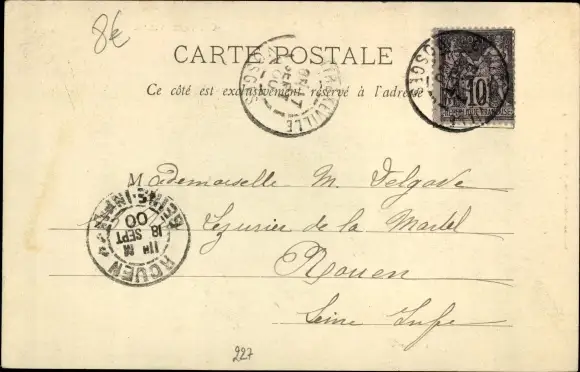 8€
CARTE POSTALE
Ce côté est exclusivement réservé à l'adresse
VOSGES
17
SEPT
00
VOSGES
10
Mademoiselle M. Delgove
de la Martel
Rouen
Seine Infre
ROUEN
SEINE-INFRE
11H M
18 SEPT
00
227